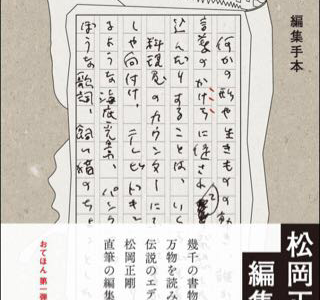 編集手本
何かの形や生きものの動
言葉のかけらに
込んだりすることは、いく
料理屋のカウンターに
しや向付け、テレビドキ
るような海底光景、パンク
ぼうな歌詞、飼い猫のちょっと
松岡正
編集
幾千の書物
万物を読み
伝説のエデ
松岡正剛
直筆の編集
おてほん 第一弾